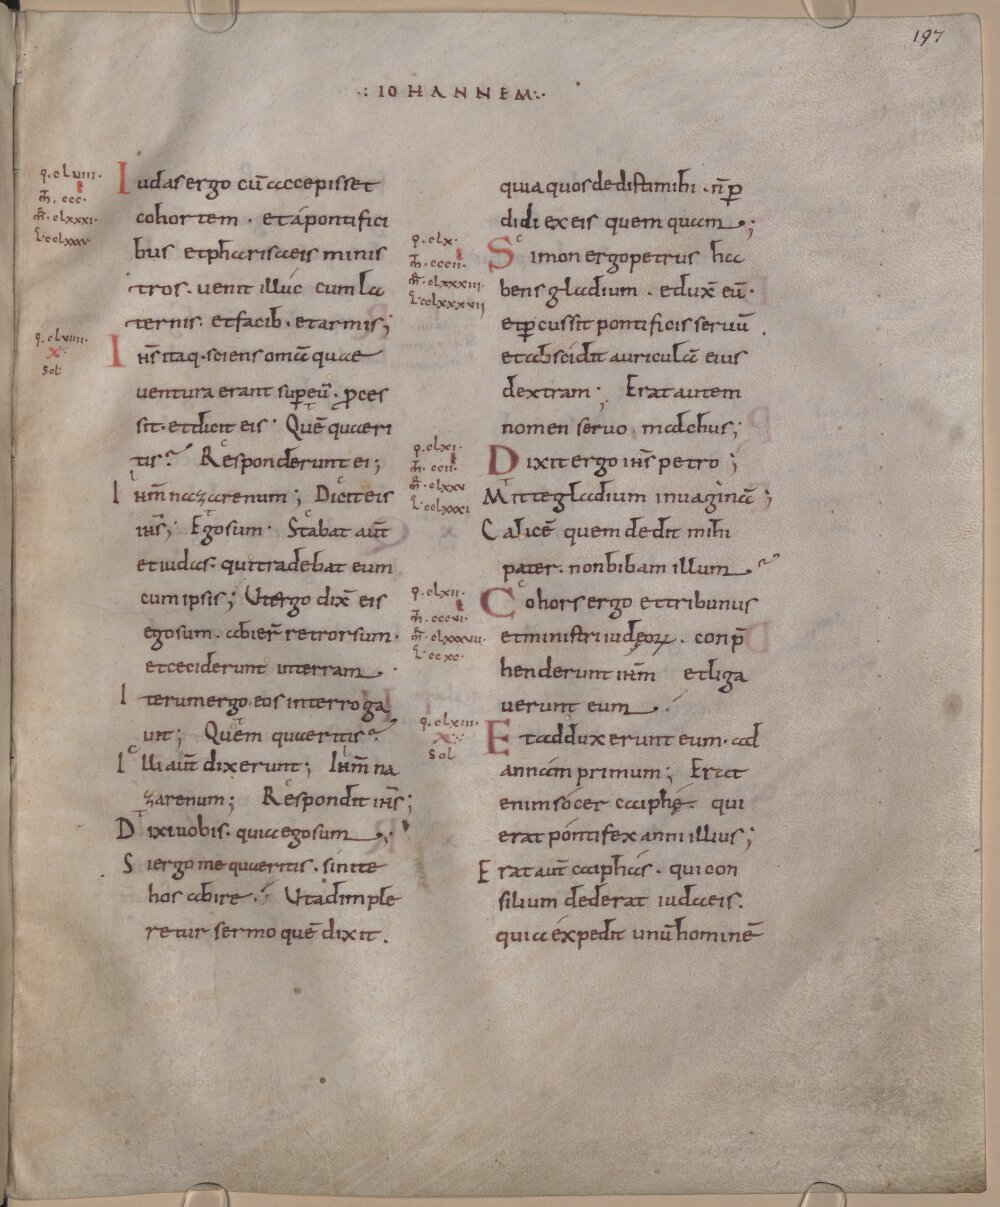 197
·: IOHANNEM :·
q. clviii.
m̄. ccc.
m̄r. clxxxi.
l. cclxxxv
Iudas ergo cū accepisset
cohortem . et a pontifici
bus et pharisaeis minis
tros . uenit illuc cum la
ternis . et facib. et armis;
q. clviiii.
x
Sol
Ihs̄ itaq. sciens omīa quae
uentura erant sup̱ eū . p̱ces
sit . et dicit eis · Quē quaeri
tis? Responderunt ei;
Ihm̄ nazarenum; Dicit eis
ihs̄; Ego sum · Stabat aut̄
et iudas . qui tradebat eum
cum ipsis; Ut ergo dix̄ eis
ego sum . abier̄ retrorsum ·
et ceciderunt in terram .
Iterum ergo eos interroga
uit; Quem quaeritis?
Illi aut̄ dixerunt; Ihm̄ na
zarenum; Respondit ihs̄;
Dixi uobis . quia ego sum;
Si ergo me quaeritis . sinite
hos abire . Ut adimple
retur sermo quē dixit .
quia quos dedisti mihi . n̄ p̱
didi ex eis quemquam;
q. clx.
m̄. cccii.
m̄r. clxxxiii.
l. cclxxxvii
Simon ergo petrus ha
bens gladium . edux̄ eū .
et p̱cussit pontificis seruū .
et abscidit auriculā eius
dextram; Erat autem
nomen seruo malchus;
q. clxi.
m̄. ccii.
m̄r. clxxv
l. cclxxxi
Dixit ergo ihs̄ petro;
Mitte gladium in uaginā;
Calicē quem dedit mihi
pater . non bibam illum?
q. clxii.
m̄. cccvi.
m̄r. clxxxvii.
l. ccxc.
Cohors ergo et tribunus
et ministri iudęoꝝ . conp̄
henderunt ihm̄ et liga
uerunt eum .
q. clxiii.
x
Sol
Et adduxerunt eum . ad
annam primum; Erat
enim socer caiphę . qui
erat pontifex anni illius;
Erat aut̄ caiphas . qui con
silium dederat iudaeis .
quia expedit unū hominē